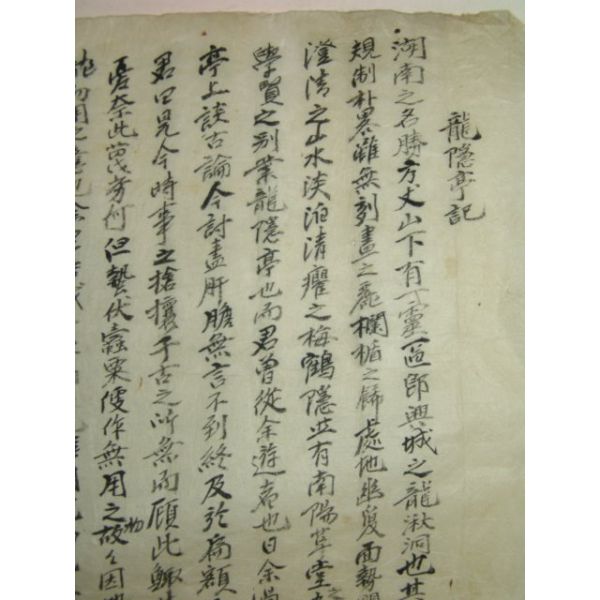 龍隱亭記
湖南之名勝方丈山下有一靈區即興城之龍湫洞也其
規制朴畧雖無刻畫之麗欄楯之餙處地幽夐面勢
澄清之山水淡泊清癯之梅鶴隱並有南陽草堂之
學賢之別業龍隱亭也而君曾從余遊者也日余過
亭上談古論今討盡肝膽無言不到終及於扁額
君曰見今時事之搶攘千古之所無而顧此鯫生
憂奈此蔑劣何但蟄伏蠹粟便作無用之物故々因